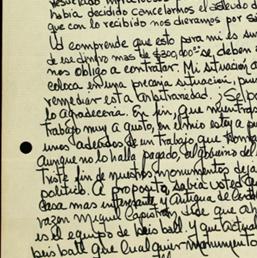 había decidido concedernos el saludo d
que con lo recibido nos dieramos por s
Ud comprende que esto para mi la su
de ese dinero mas de $200,000.00 se deben a
nos obligo a contratar. Mi situación a
coloca en una precaria situación, pue
remediar esta arbitrariedad, ¡Se po
lo agradecería. En fin, que mientras
trabajo muy a gusto, en el mio estoy a p
unos adeudos de un trabajo que
aunque no lo halla pagado, el Gobierno del
triste fin de nuestros monumentos deja
político. A proposito, sabía usted que
casa mas interesante y Antigua de
razon Miguel Capistran, de que al
es el equipo de beis ball. Y que actual
beis ball que cualquier monumento